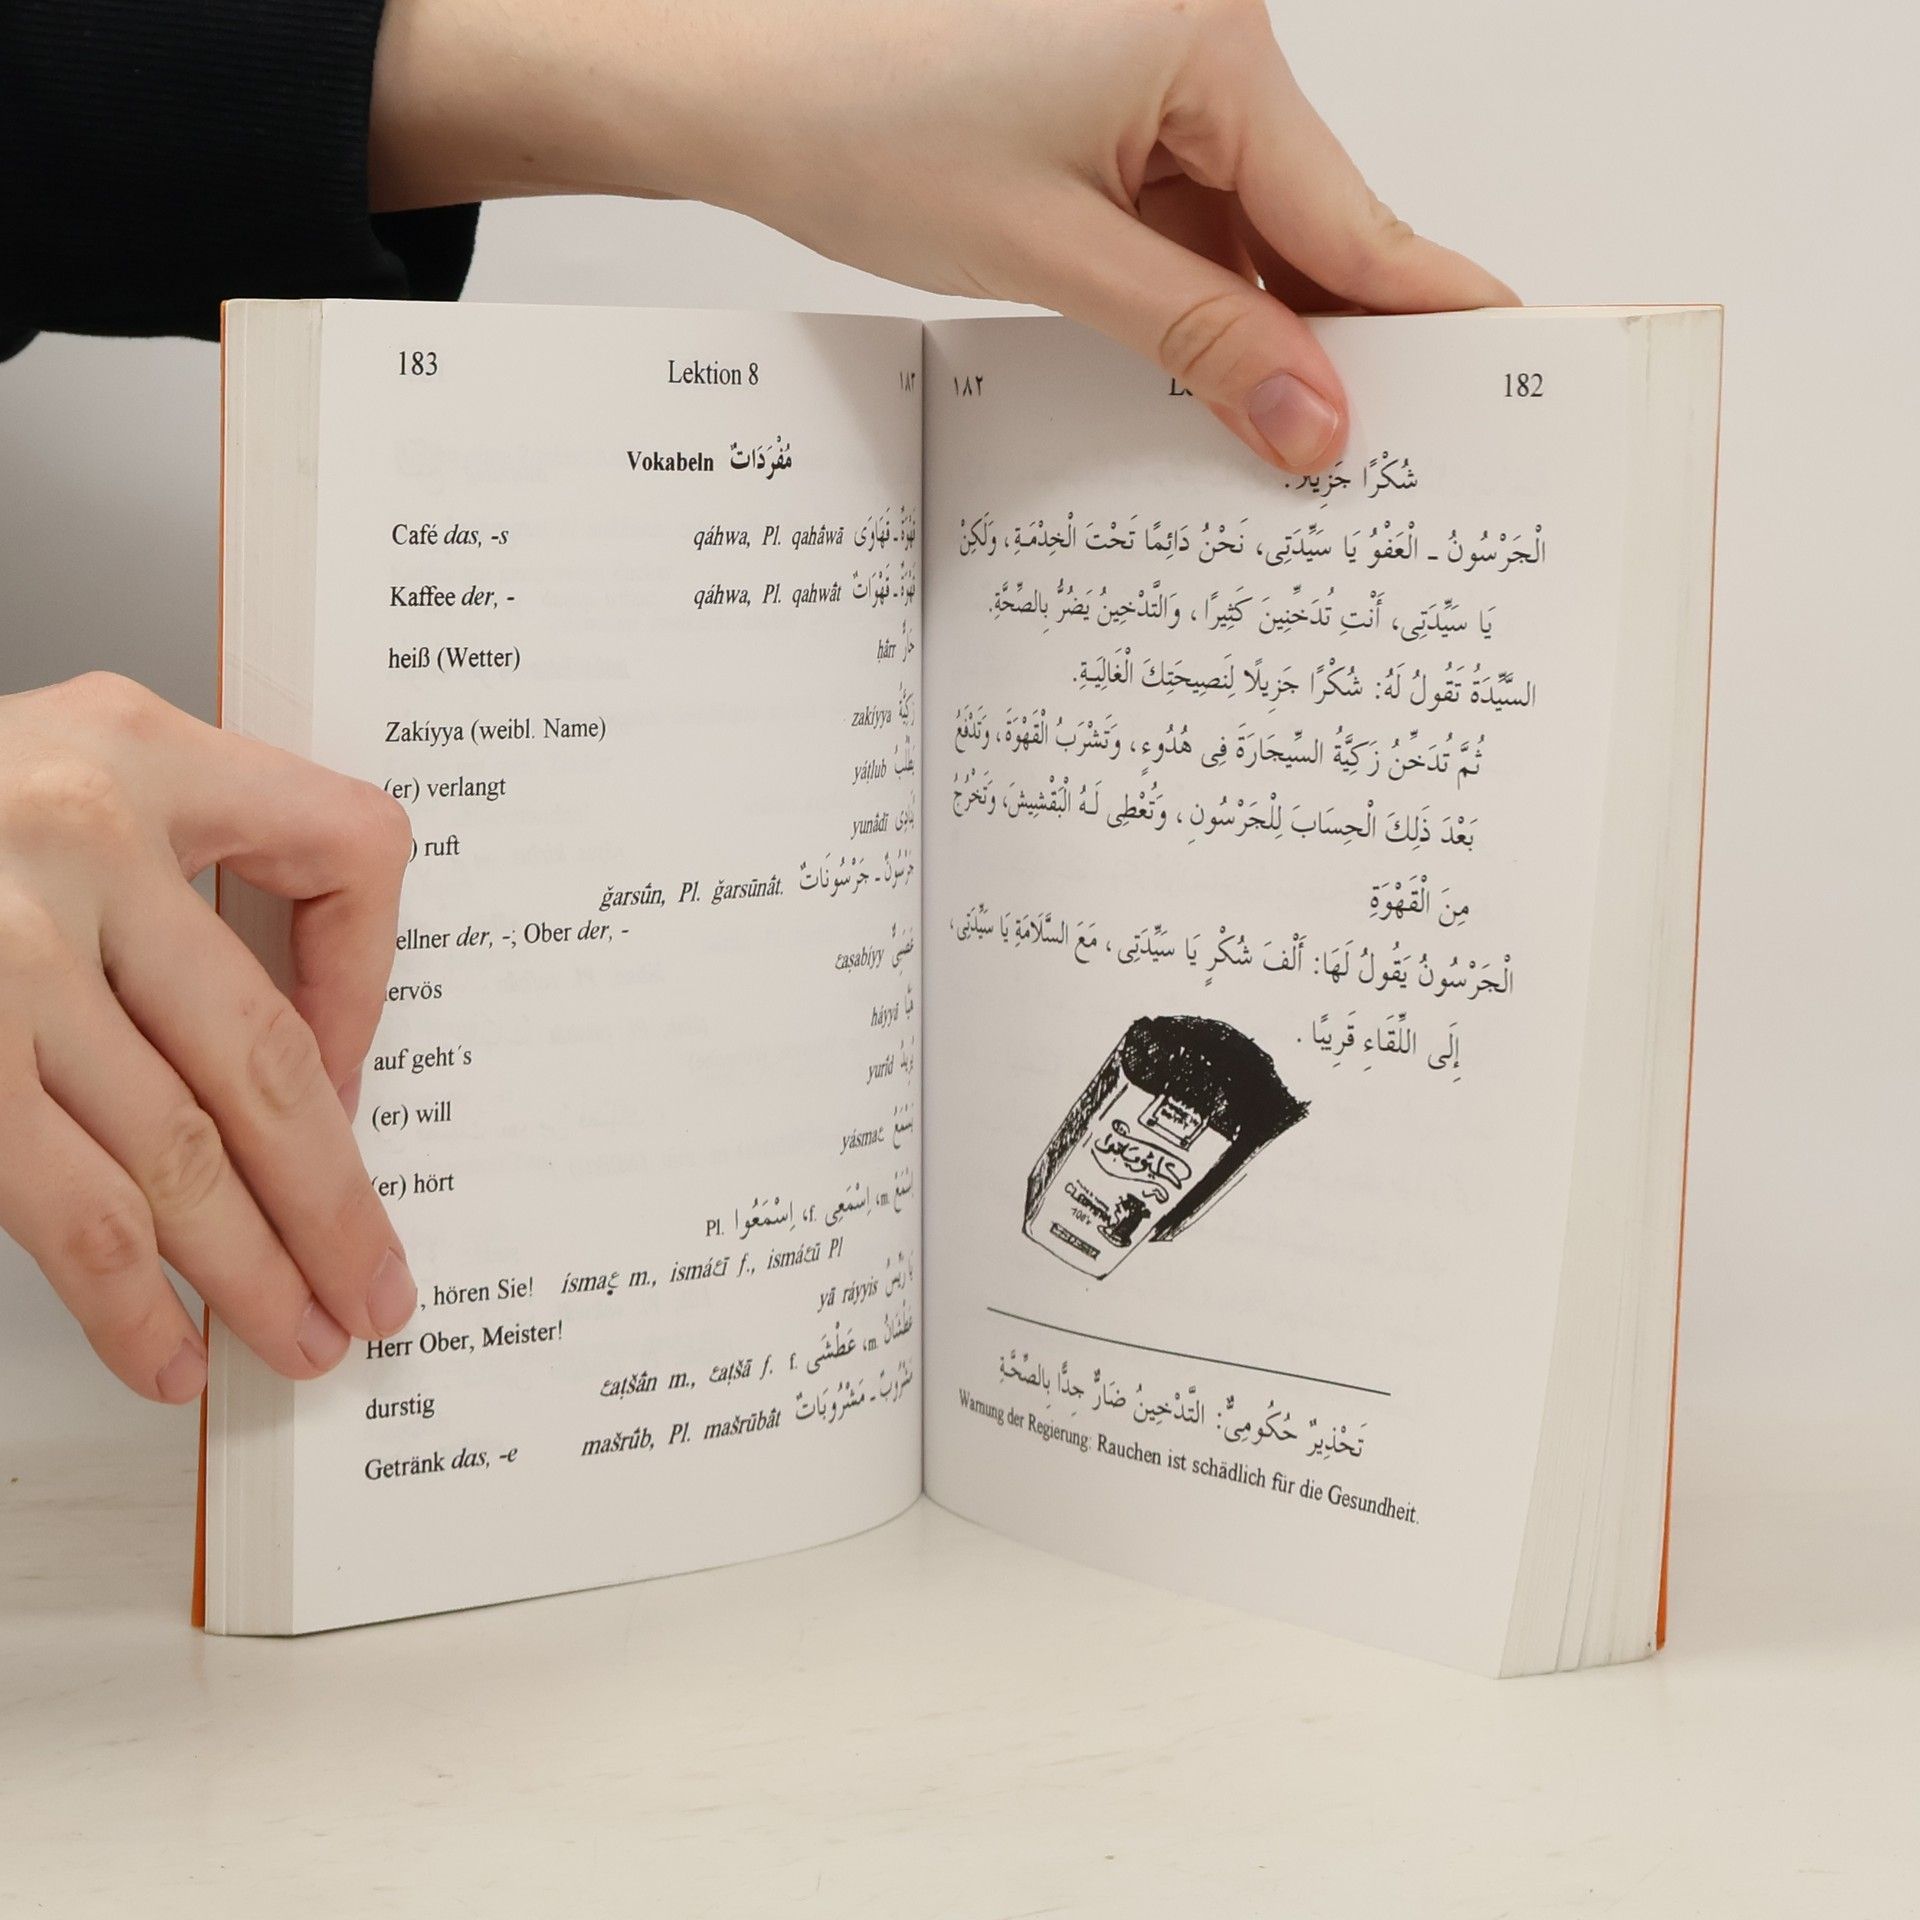 182
١٨٢
شُكْرًا جَزِيلًا.
الْجَرْسُونُ ـ الْعَفْوُ يَا سَيِّدَتِى، نَحْنُ دَائِمًا تَحْتَ الْخِدْمَـةِ، وَلَكِنْ
يَا سَيِّدَتِى، أَنْتِ تُدَخِّنِينَ كَثِيرًا، وَالتَّدْخِينُ يَضُرُّ بِالصِّحَّةِ.
السَّيِّدَةُ تَقُولُ لَهُ: شُكْرًا جَزِيلًا لِنَصِيحَتِكَ الْغَالِيَـةِ.
ثُمَّ تُدَخِّنُ زَكِيَّةُ السِّيجَارَةَ فِى هُدُوءٍ، وَتَشْرَبُ الْقَهْوَةَ، وَتَدْفَعُ
بَعْدَ ذَلِكَ الْحِسَابَ لِلْجَرْسُونِ، وَتُعْطِى لَـهُ الْبَقْشِيشَ، وَتَخْرُجُ
مِنَ الْقَهْوَةِ
الْجَرْسُونُ يَقُولُ لَهَا: أَلْفَ شُكْرٍ يَا سَيِّدَتِى، مَعَ السَّلَامَةِ يَا سَيِّدَتِى،
إِلَى اللِّقَاءِ قَرِيبًا.
كليوباترا
تَحْذِيرٌ حُكُومِىٌّ: التَّدْخِينُ ضَارٌّ جِدًّا بِالصِّحَّةِ
Warnung der Regierung: Rauchen ist schädlich für die Gesundheit.
183 Lektion 8 ١٨٣
Vokabeln مُفْرَدَاتٌ
Café das, -s qáhwa, Pl. qahā́wā قَهْوَةٌ ـ قَهَاوَى
Kaffee der, - qáhwa, Pl. qahwā́t قَهْوَةٌ ـ قَهْوَاتٌ
heiß (Wetter) ḥārr حَارٌّ
Zakíyya (weibl. Name) zakíyya زَكِيَّةُ
(er) verlangt yáṭlub يَطْلُبُ
) ruft yunā́dī يُنَادِى
ǧarsū́n, Pl. ǧarsūnā́t. جَرْسُونٌ ـ جَرْسُونَاتٌ
ellner der, -; Ober der, -
ervös عaṣabíyy عَصَبِىٌّ
auf geht´s háyyā هَيَّا
(er) will yurī́d يُرِيدُ
(er) hört yásmaع يَسْمَعُ
اِسْمَعْ m.، اِسْمَعِى f.، اِسْمَعُوا Pl.
, hören Sie! ísmaع m., ismáعī f., ismáعū Pl
Herr Ober, Meister! yā ráyyis يَا رَيِّسُ
durstig عaṭšā́n m., عaṭšā f. عَطْشَانُ m.، عَطْشَى f.
Getränk das, -e mašrū́b, Pl. mašrūbā́t مَشْرُوبٌ ـ مَشْرُوبَاتٌ